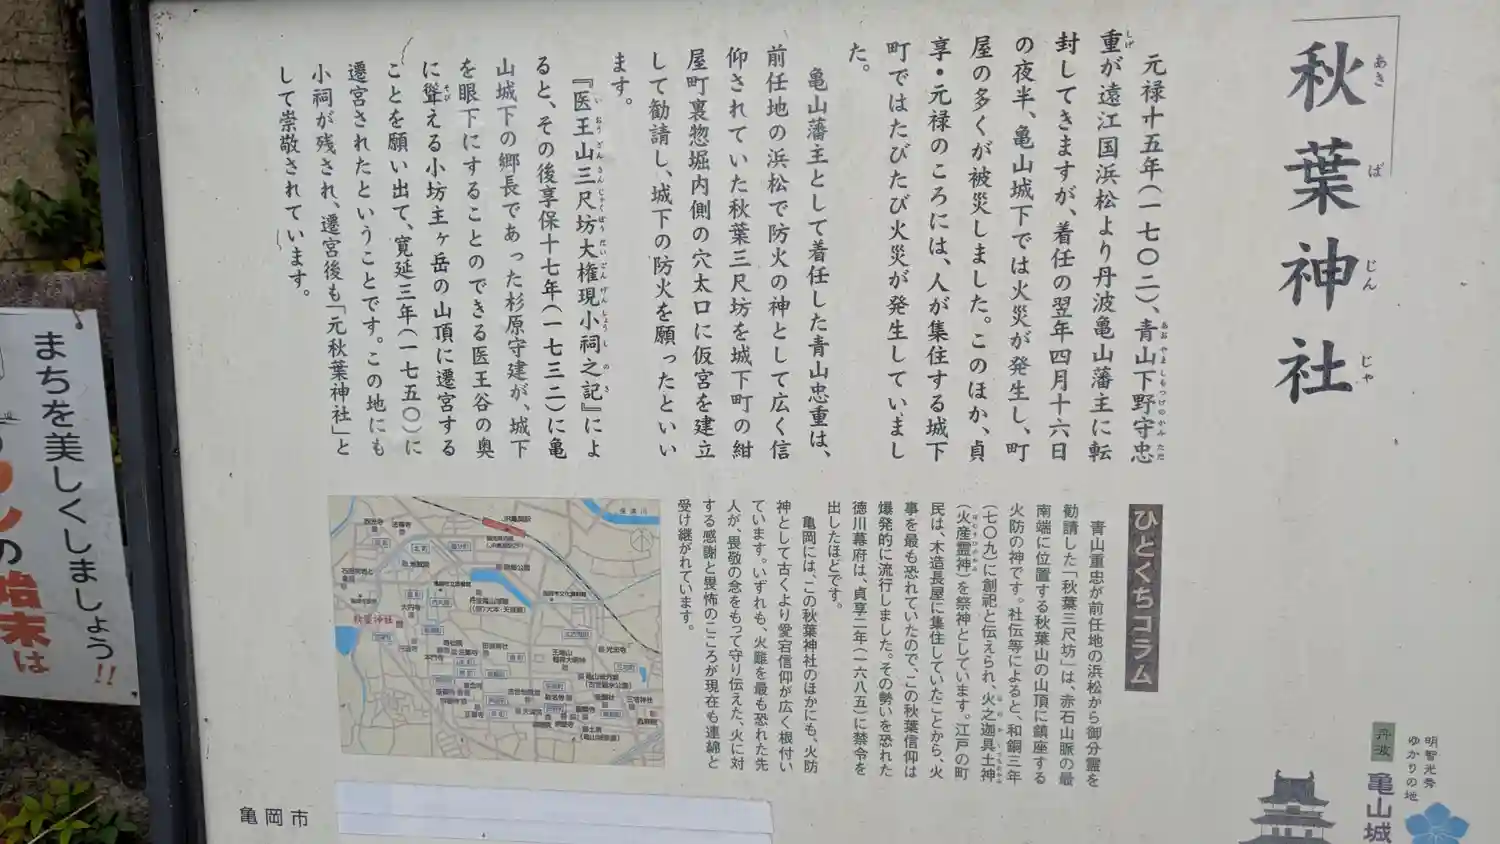 秋葉神社
元禄十五年(一七〇二)、青山下野守忠
重が遠江国浜松より丹波亀山藩主に転
封してきますが、着任の翌年四月十六日
の夜半、亀山城下では火災が発生し、町
屋の多くが被災しました。このほか、貞
享・元禄のころには、人が集住する城下
町ではたびたび火災が発生していまし
た。
亀山藩主として着任した青山忠重は、
前任地の浜松で防火の神として広く信
仰されていた秋葉三尺坊を城下町の紺
屋町裏惣堀内側の穴太口に仮宮を建立
して勧請し、城下の防火を願ったといい
ます。
『医王山三尺坊大権現小祠之記』によ
ると、その後享保十七年(一七三二)に亀
山城下の郷長であった杉原守建が、城下
を眼下にすることのできる医王谷の奥
に聳える小坊主ヶ岳の山頂に遷宮する
ことを願い出て、寛延三年(一七五〇)に
遷宮されたということです。この地にも
小祠が残され、遷宮後も「元秋葉神社」と
して崇敬されています。
ひとくちコラム
青山重忠が前任地の浜松から御分霊を
勧請した「秋葉三尺坊」は、赤石山脈の最
南端に位置する秋葉山の山頂に鎮座する
火防の神です。社伝等によると、和銅三年
(七〇九)に創祀と伝えられ、火之迦具土神
(火産霊神)を祭神としています。江戸の町
民は、木造長屋に集住していたことから、火
事を最も恐れていたので、この秋葉信仰は
爆発的に流行しました。その勢いを恐れた
徳川幕府は、貞享二年(一六八五)に禁令を
出したほどです。
亀岡には、この秋葉神社のほかにも、火防
神として古くより愛宕信仰が広く根付い
ています。いずれも、火難を最も恐れた先
人が、畏敬の念をもって守り伝えた、火に対
する感謝と畏怖のこころが現在も連綿と
受け継がれています。
秋葉神社
亀岡市
明智光秀
ゆかりの地
丹波
亀山城
まちを美しくしましょう!!
の始末は